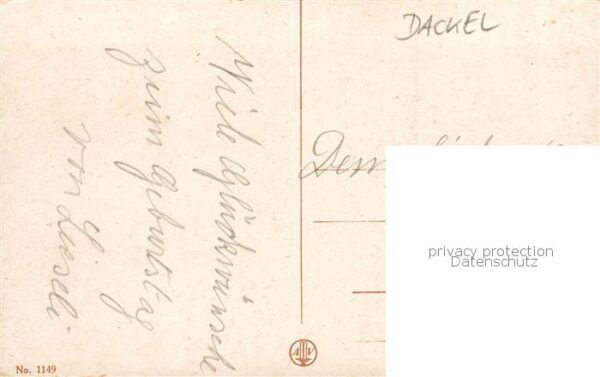 DACKEL
Viele Glückwünsche
zum Geburtstag
von Lieseli
Dem
privacy protection
Datenschutz
No. 1149